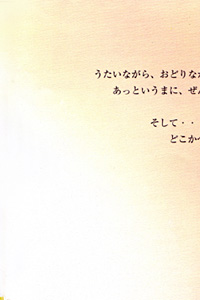 うたいながら、おどりなが
あっというまに、ぜん
そして・・
どこかへ